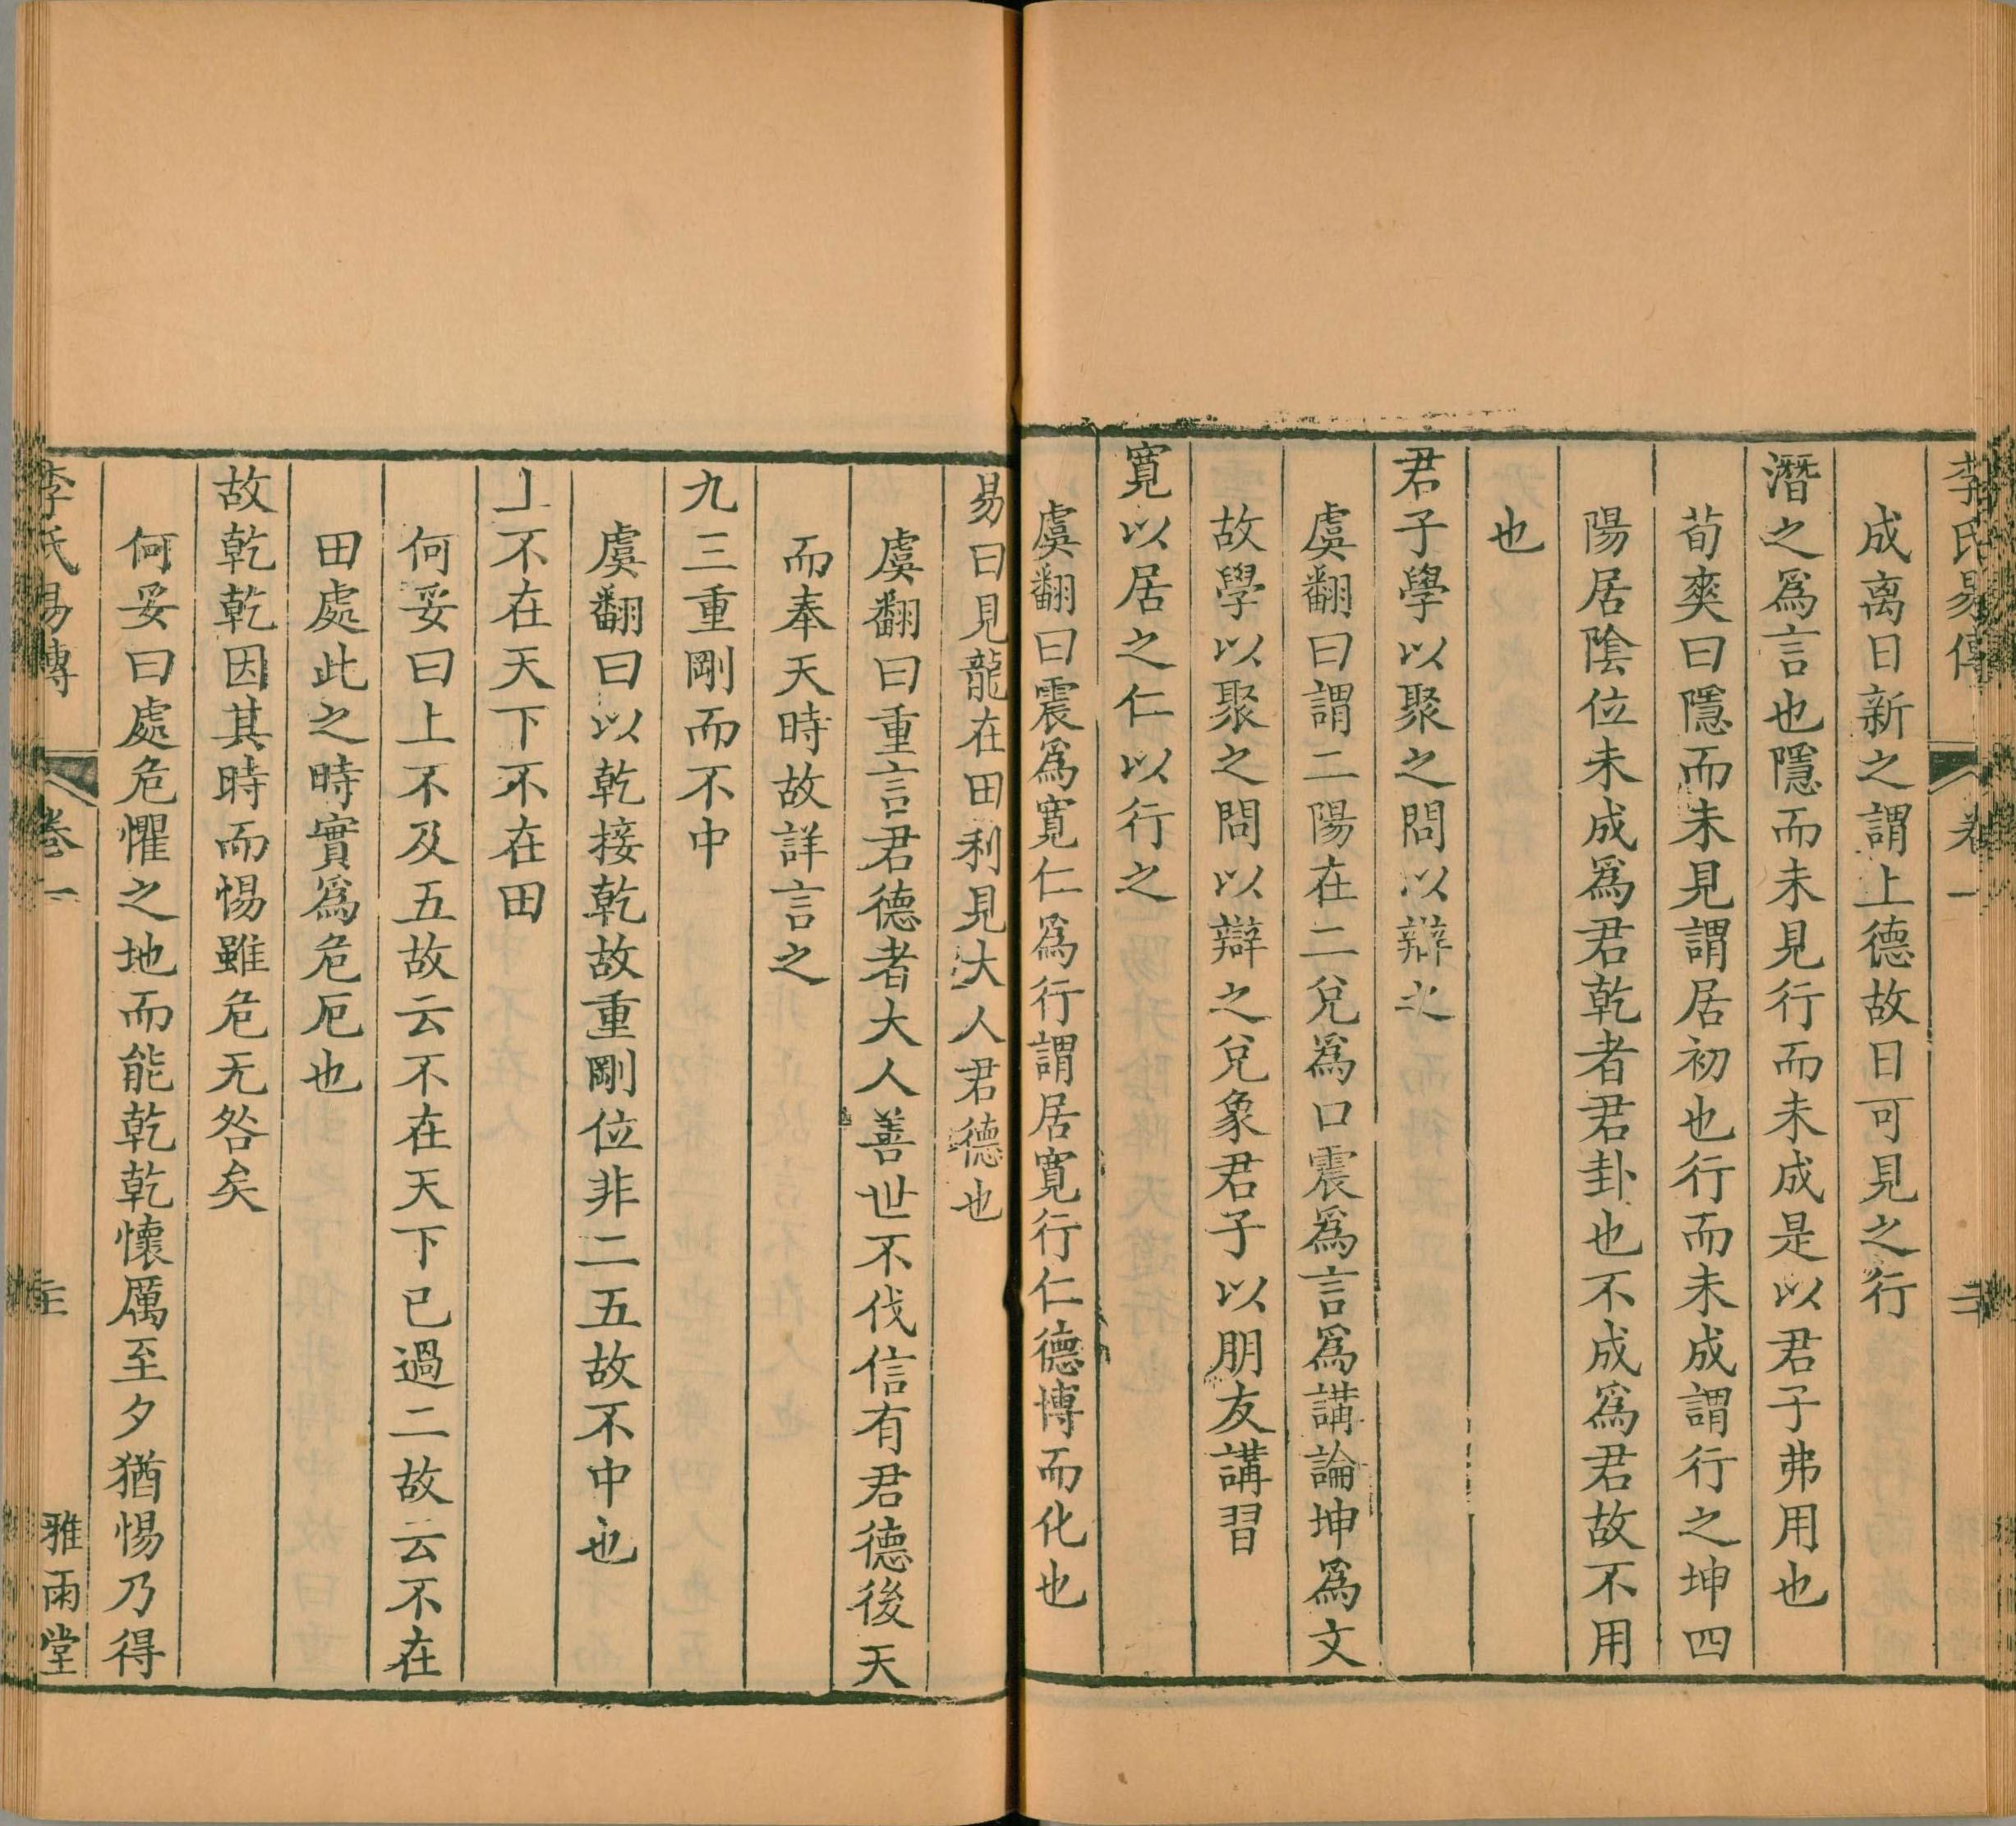 李氏易傳 卷一
成离日新之謂上德故日可見之行
潛之爲言也隱而未見行而未成是以君子弗用也
荀爽曰隱而未見謂居初也行而未成謂行之坤四
陽居陰位未成爲君乾者君卦也不成爲君故不用
也
君子學以聚之問以辯之
虞翻曰謂二陽在二兌爲口震爲言爲講論坤爲文
故學以聚之問以辯之兌象君子以朋友講習
寬以居之仁以行之
虞翻曰震爲寬仁爲行謂居寬行仁德博而化也
易曰見龍在田利見大人君德也
虞翻曰重言君德者大人善世不伐信有君德後天
而奉天時故詳言之
九三重剛而不中
虞翻曰以乾接乾故重剛位非二五故不中也
上不在天下不在田
何妥曰上不及五故云不在天下已過二故云不在
田處此之時實爲危厄也
故乾乾因其時而惕雖危无咎矣
何妥曰處危懼之地而能乾乾懷厲至夕猶惕乃得
李氏易傳 卷一 雅雨堂